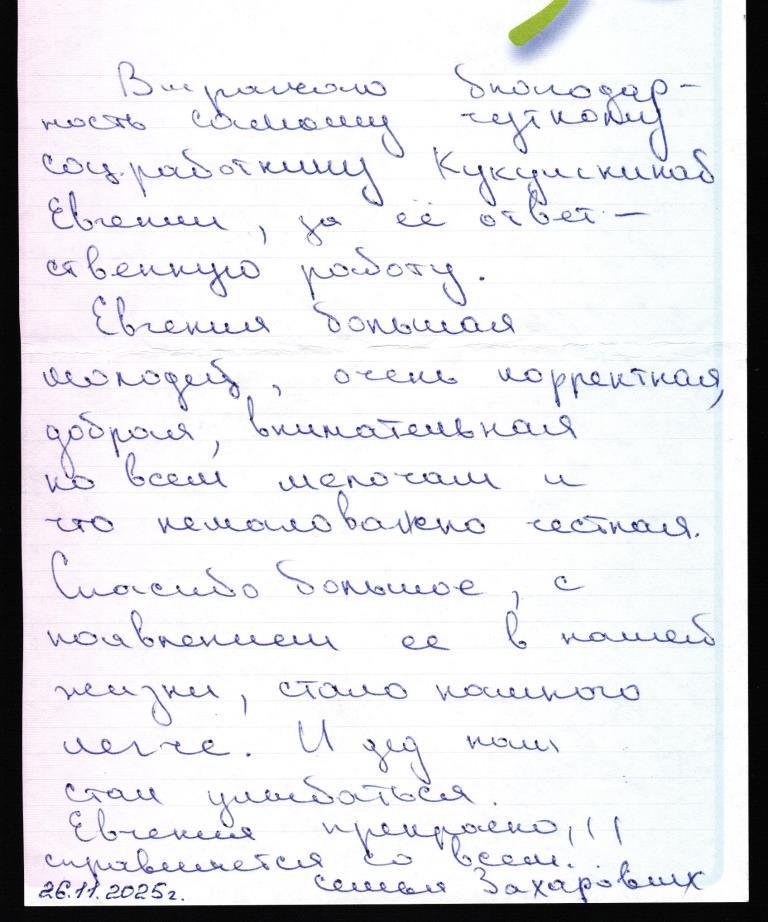 Выражаю благодар-
ность самому чуткому
соц.работнику Кукулскиной
Евгении, за её ответ-
ственную работу.
Евгения большая
молодец, очень корректная,
добрая, внимательная
ко всем мелочам и
что немаловажно честная.
Спасибо большое, с
появлением ее в нашей
жизни, стало намного
легче. И дед наш
стал улыбаться.
Евгения прекрасно,!!
справляется со всем.
семья Захаровых
26.11.2025г.